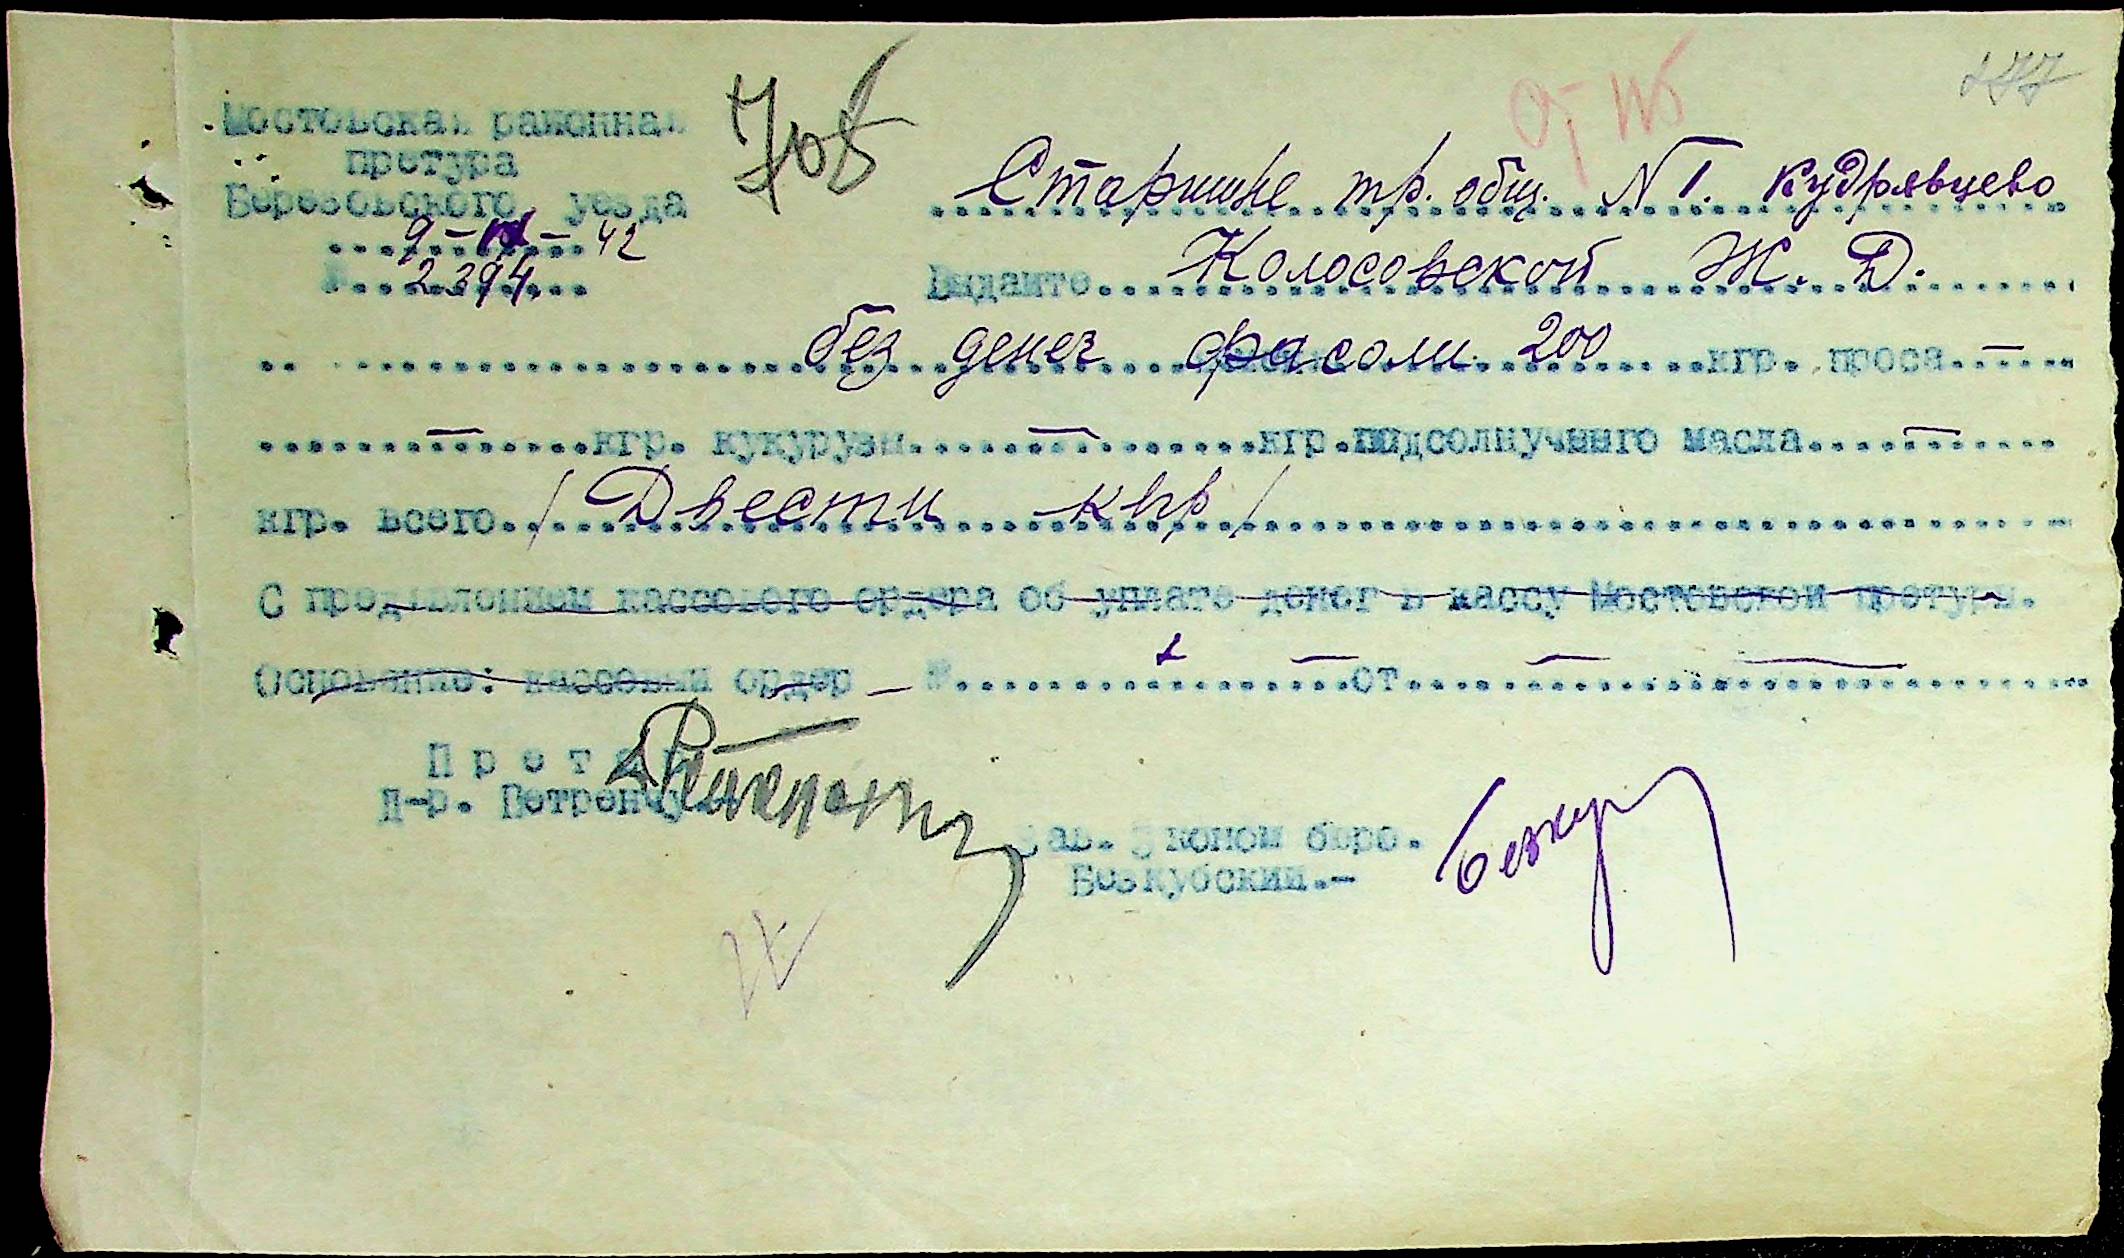 277
708
Мостовская районная
претура
Березовского уезда
9 - - 42
№ 2394
Старшине тр. общ. N 1. Кудрявцево
Выдайте Колосовской Ж. Д.
без денег фасоли 200 кгр. проса —
— кгр. кукурузы — кгр. подсолнучного масла —
кгр. всего / Двести кгр /
С предявлением кассового ордера об уплате денег в кассу Мостовской претуры.
Основание: кассовый ордер — № — от — —
Претор
Д-р. Петренчук
Зав. Эконом бюро.
Безкубский.-
Безкуб